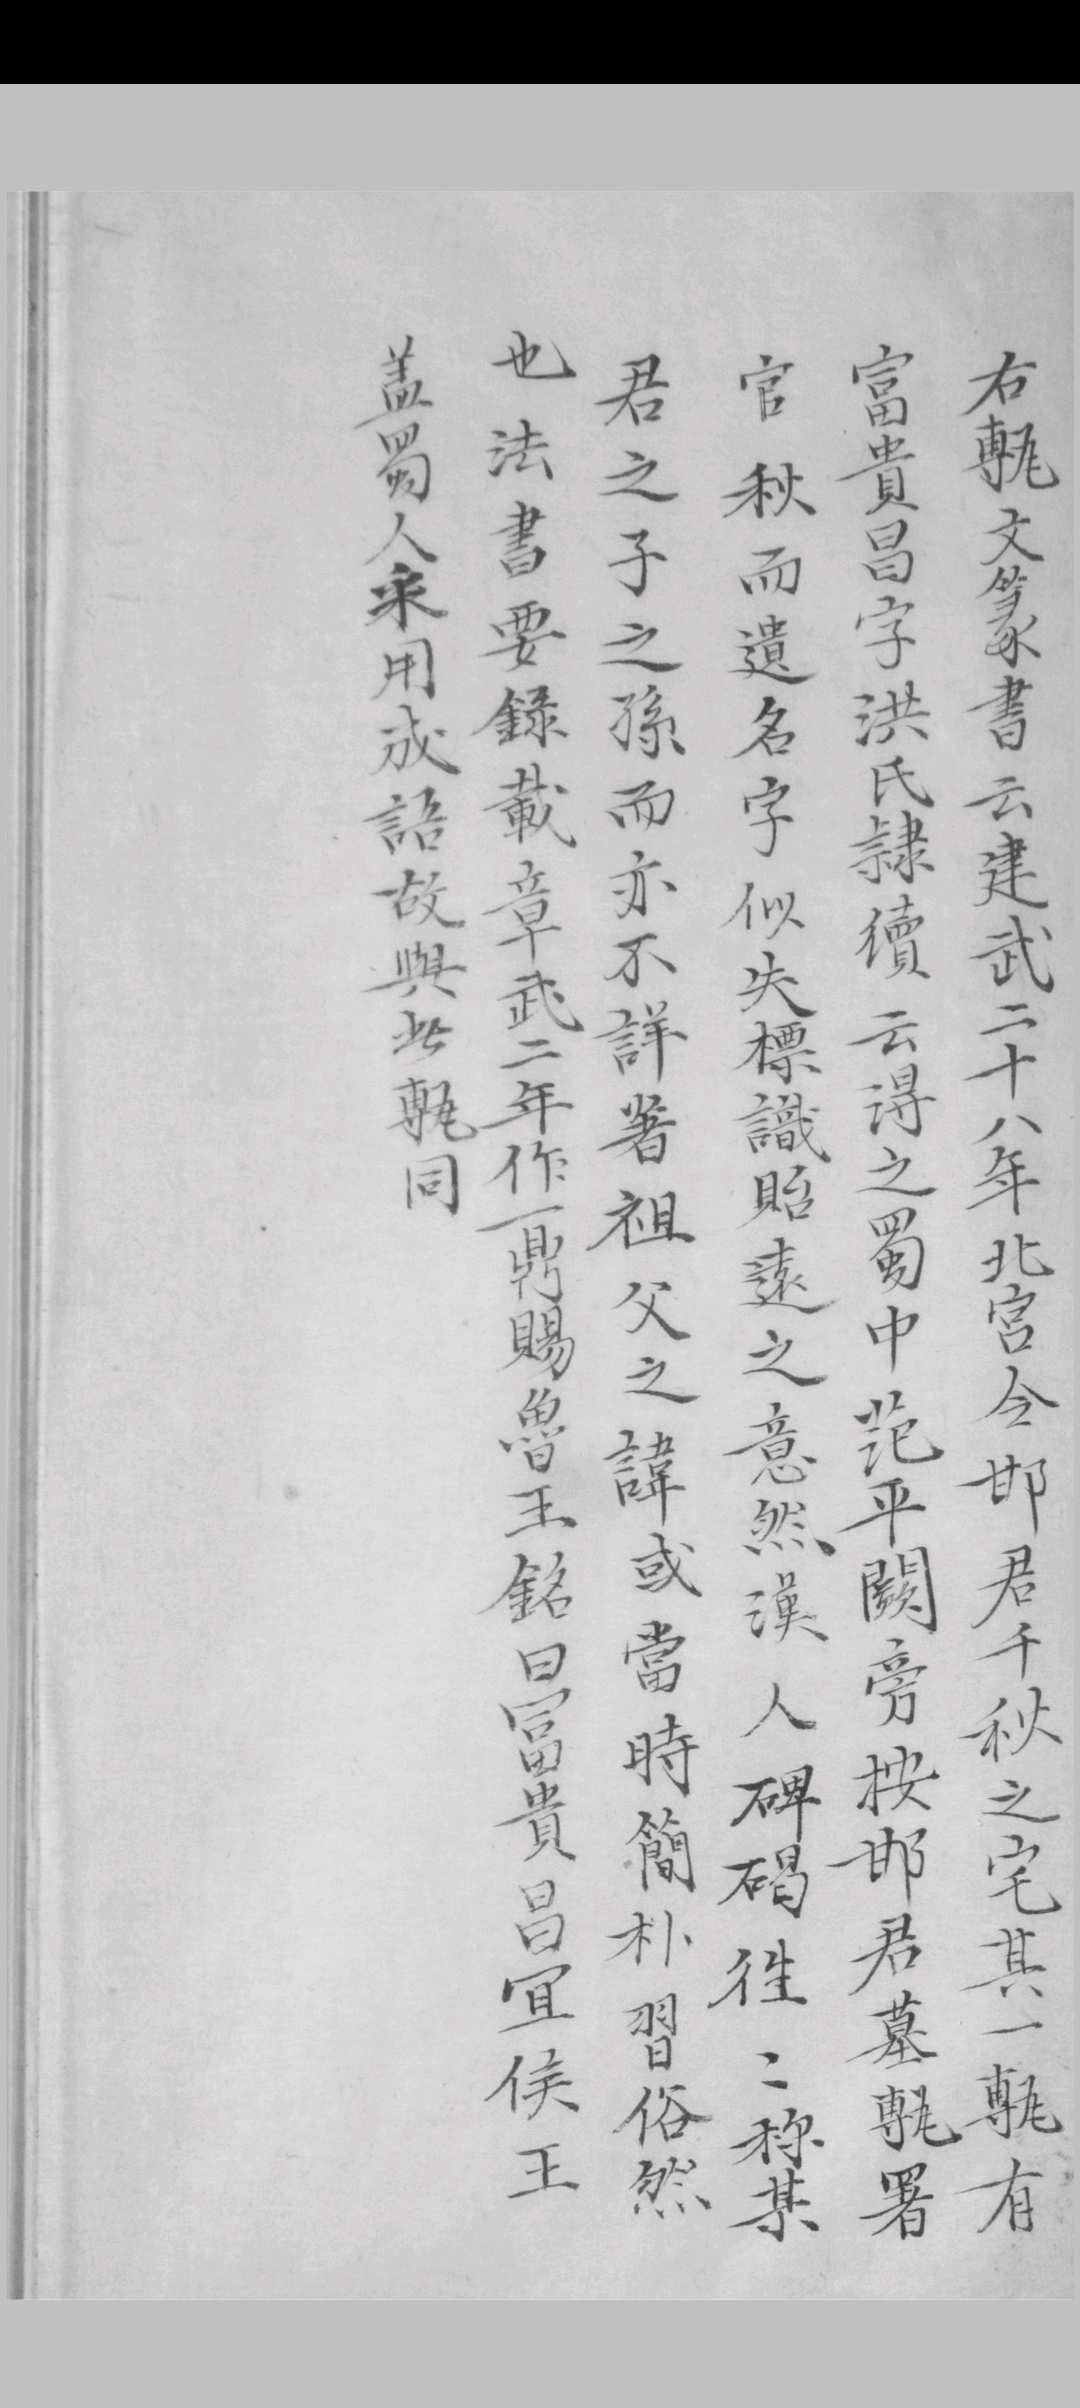 右甎文篆書云建武二十八年北宮令邯君千秋之宅其一甎有
富貴昌字洪氏隸續云得之蜀中范平闕旁按邯君墓甎署
官秋而遺名字似失標識貽遠之意然漢人碑碣往〻称某
君之子之孫而亦不詳著祖父之諱或當時簡朴習俗然
也法書要錄載章武二年作一鼎賜魯王銘曰富貴昌宜侯王
盖蜀人采用成語故與此甎同